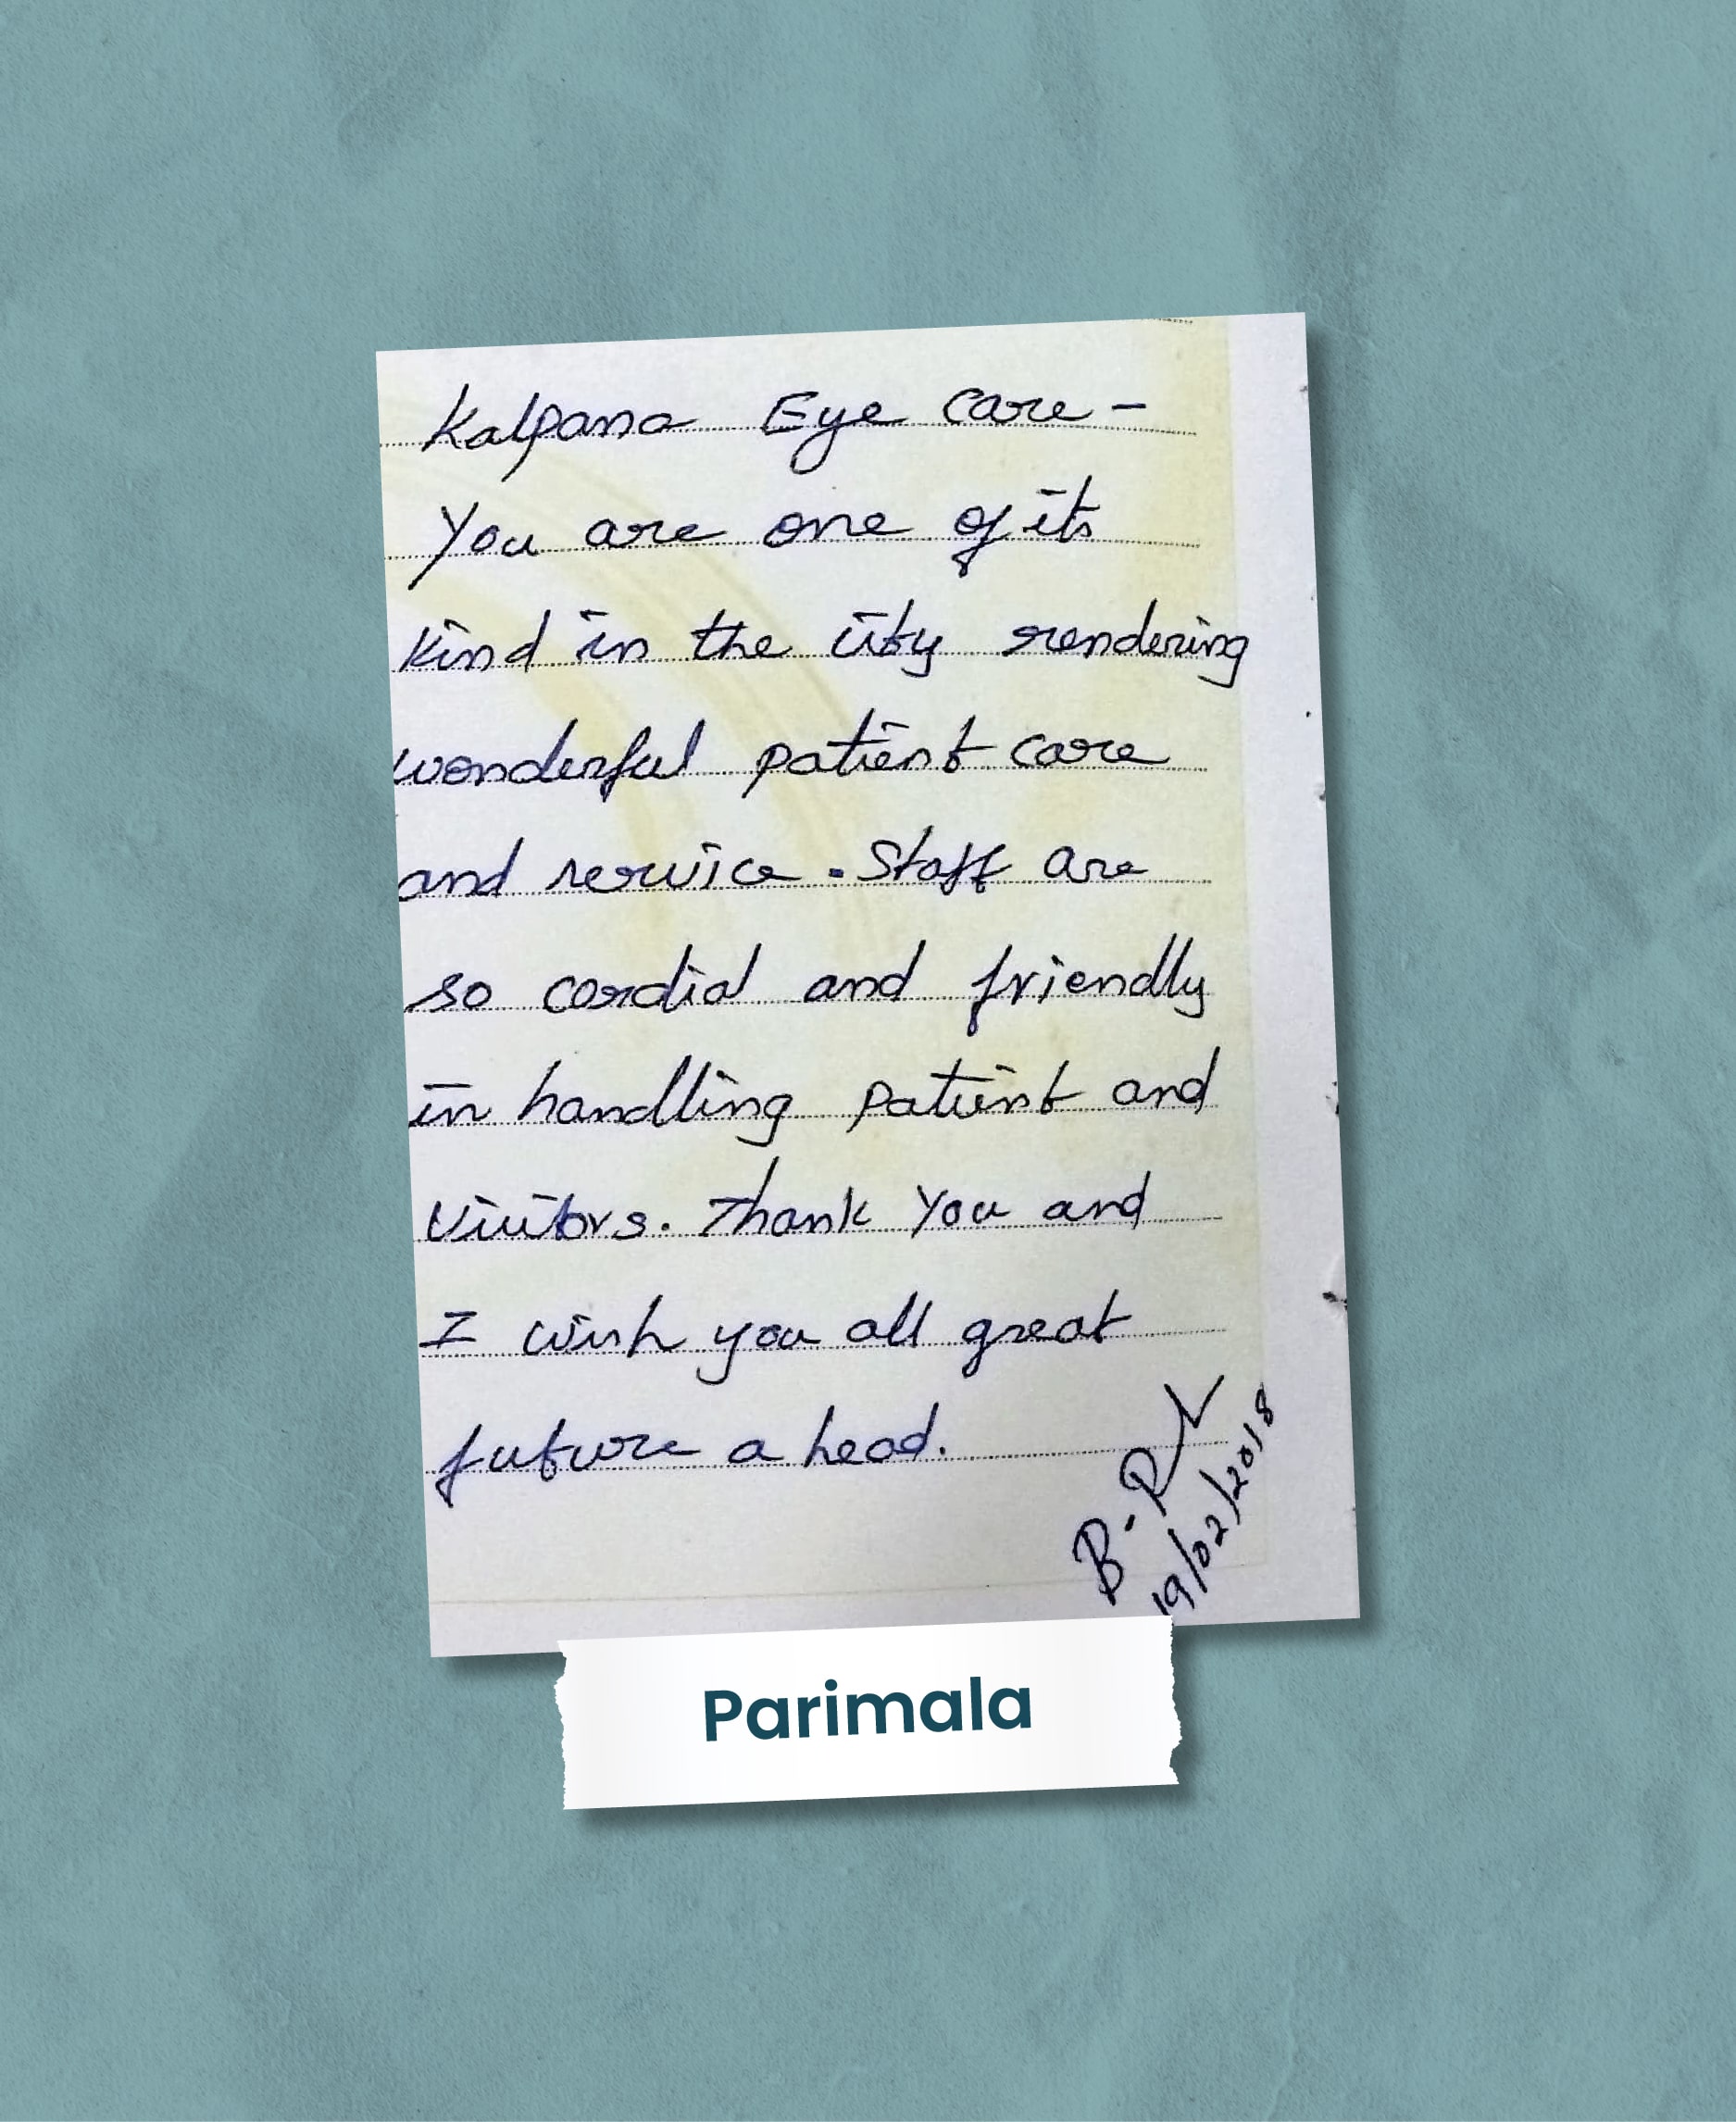 Kalpana Eye Care -
You are one of its
kind in the city rendering
wonderful patient care
and service. Staff are
so cordial and friendly
in handling patient and
visitors. Thank You and
I wish you all great
future a head.
19/02/2018
Parimala